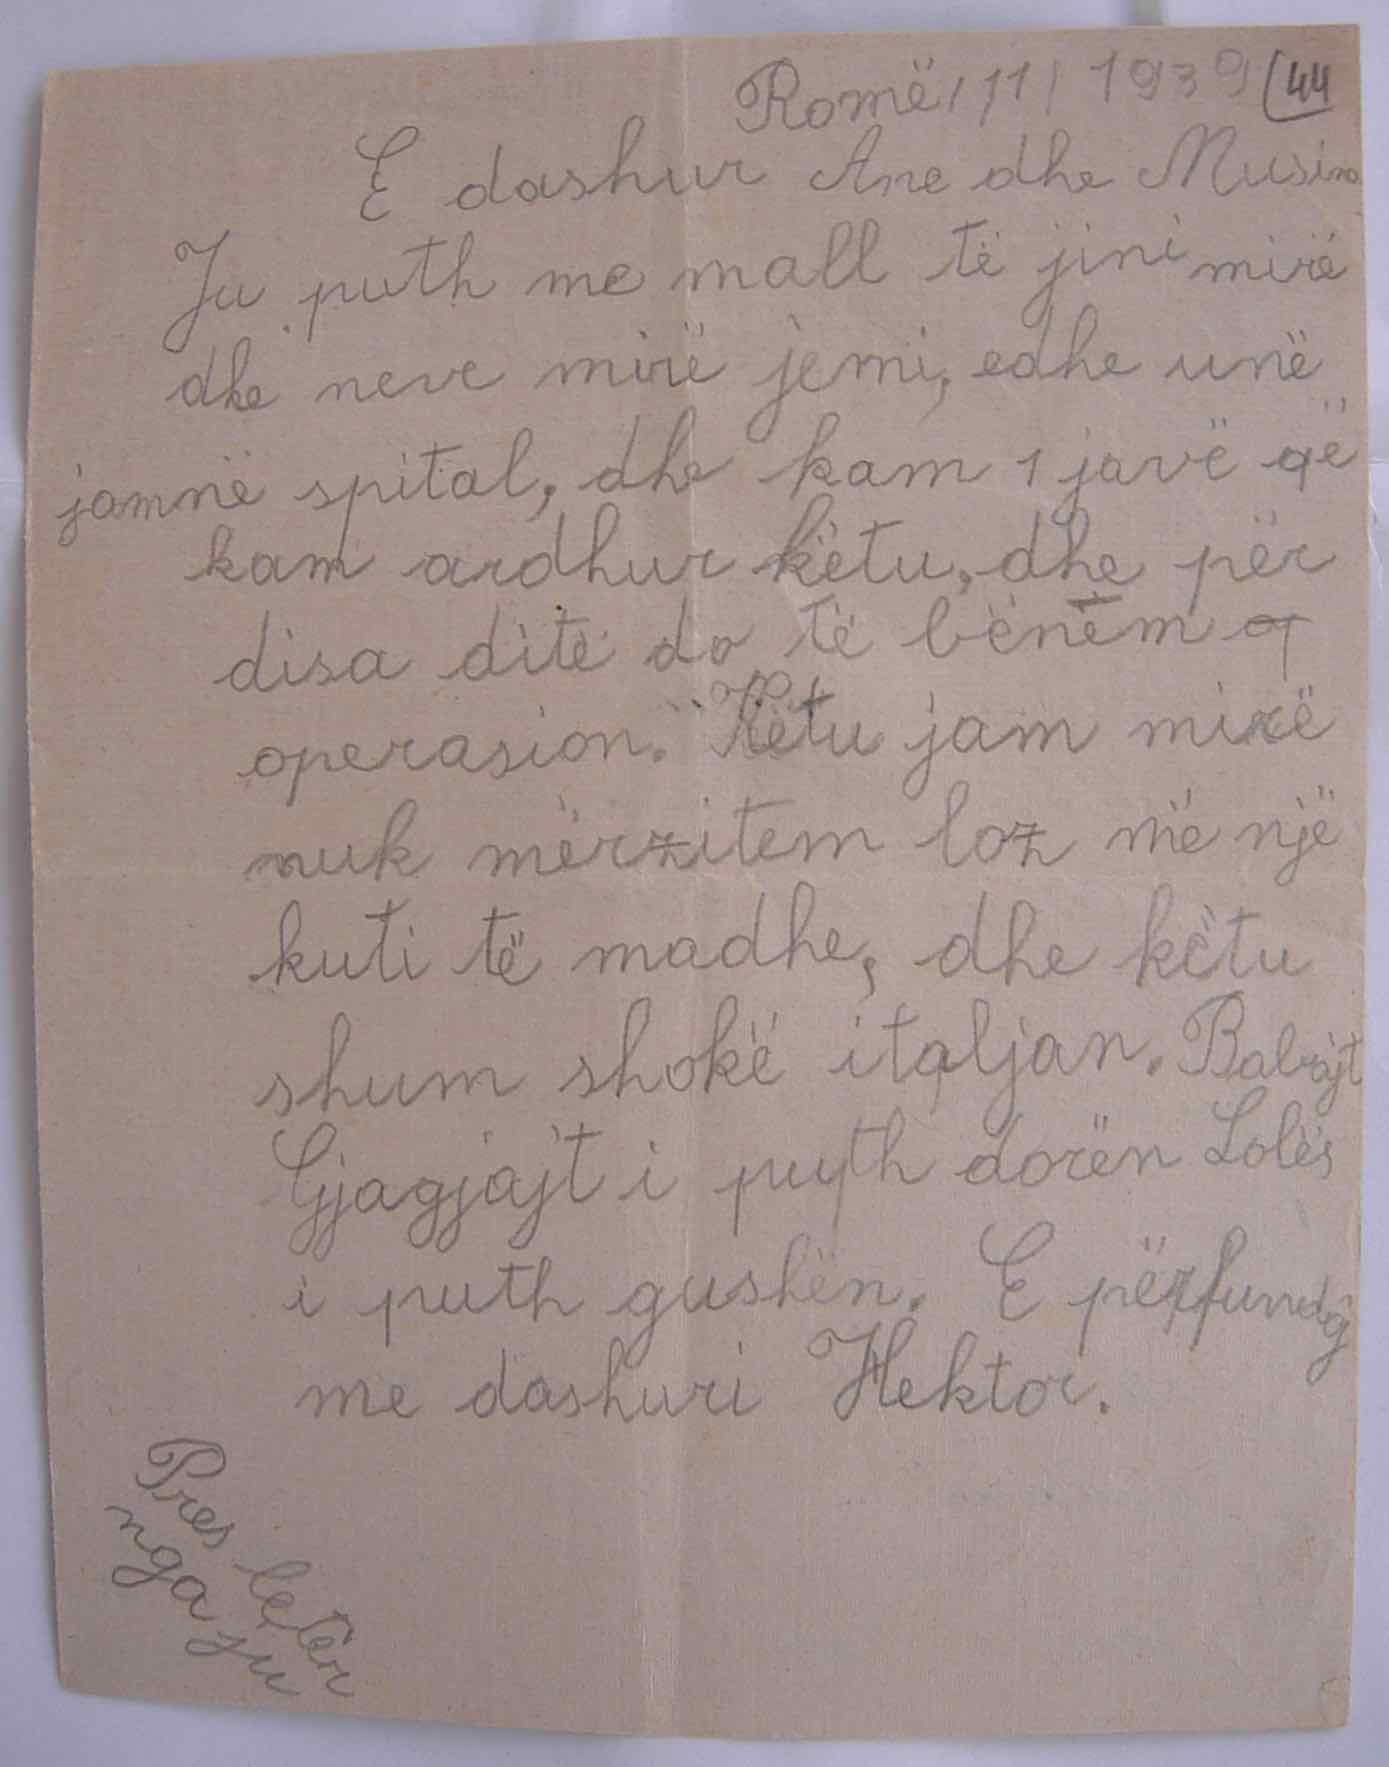 Romë, 11 / 1939 (44
E dashur Ane dhe Musina
Ju puth me mall të jini mirë
dhe neve mirë jemi, edhe unë
jamnë spital, dhe kam 1 javë që
kam ardhur këtu, dhe për
disa ditë do të bënëm
operasion. Këtu jam mirë
nuk mërzitem loz më një
kuti të madhe, dhe këtu
shum shokë italjan.
Gjagjajt i puth dorën Lolës
i puth gushën. E përfundoj
me dashuri Hektor.
Pres letër
nga ju